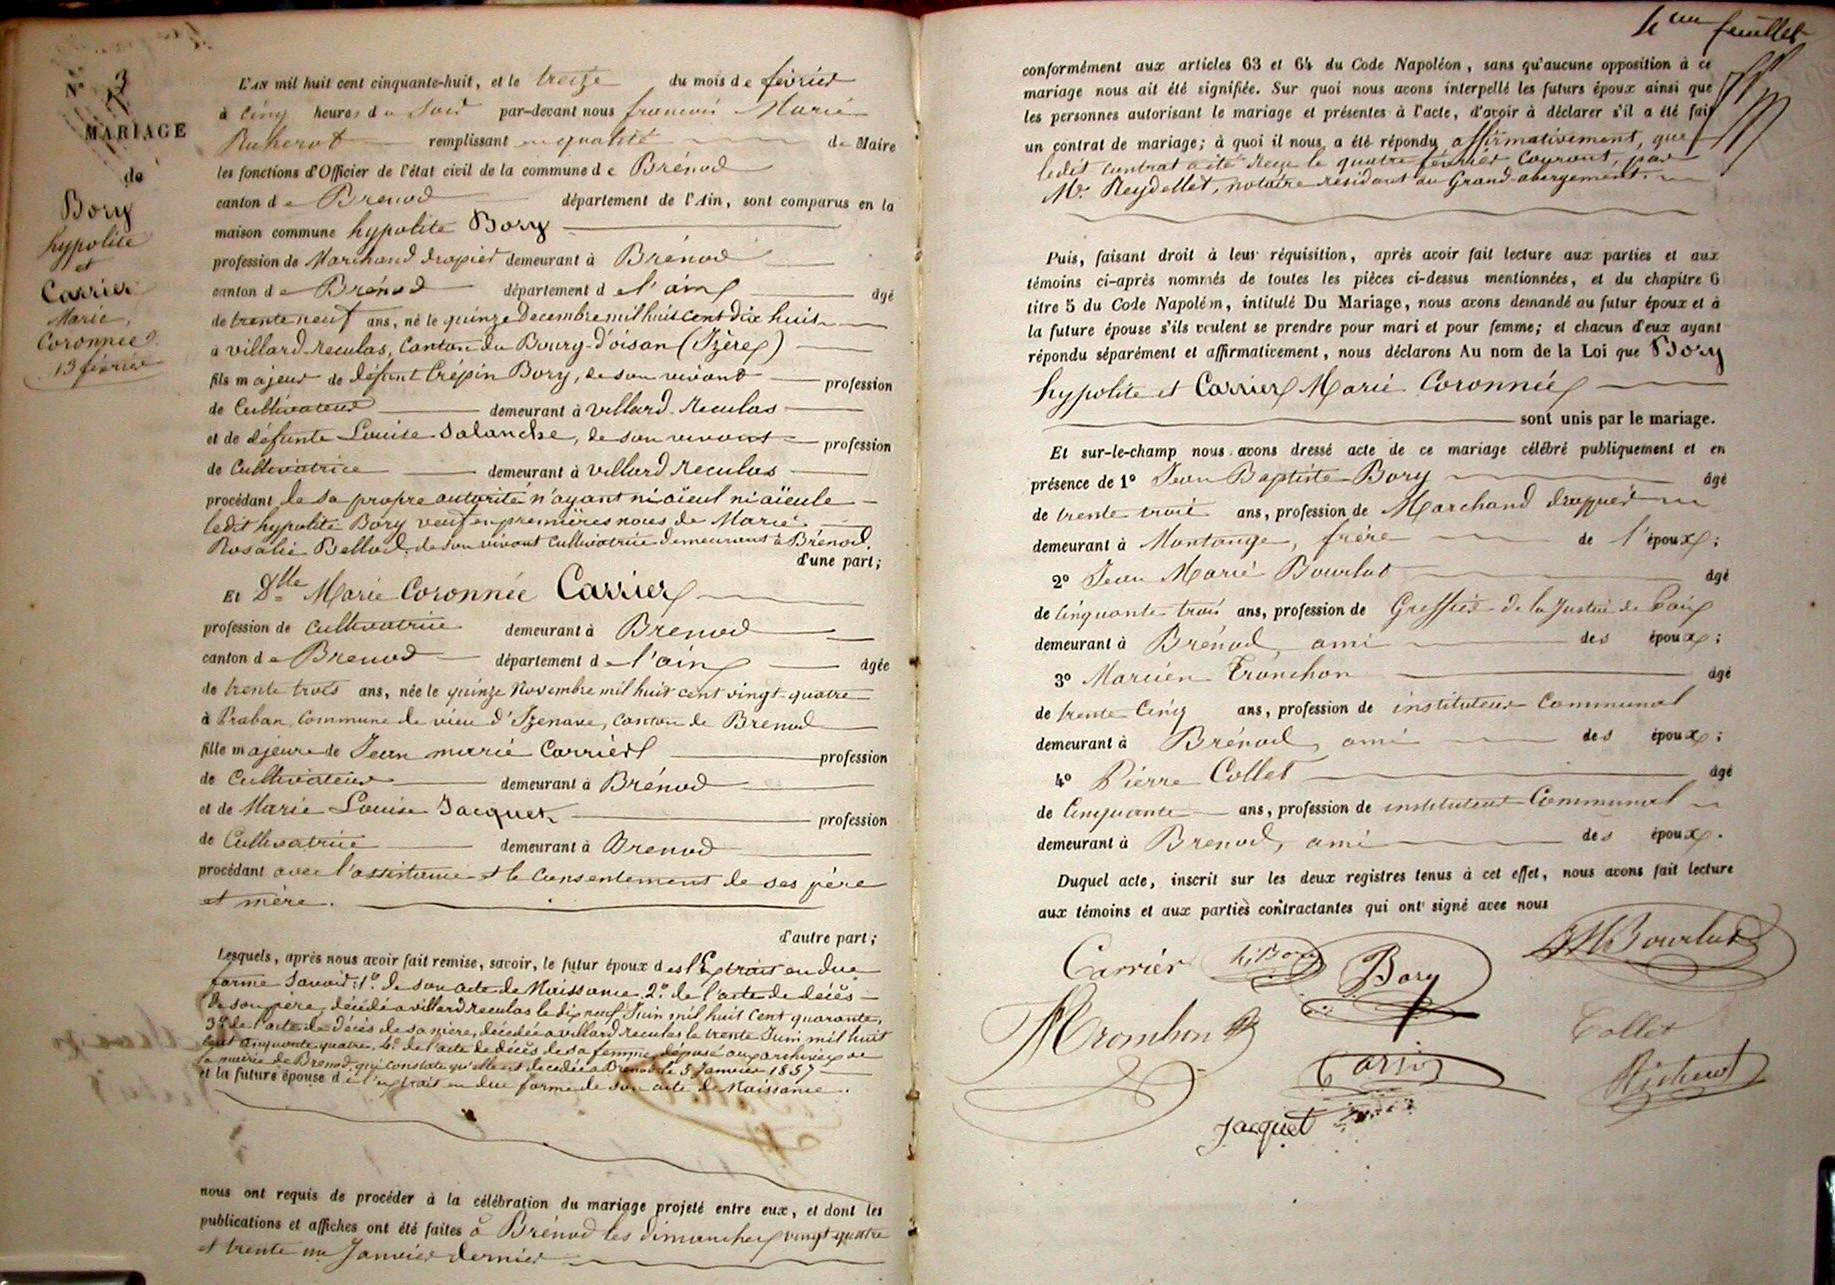 4me feuillet
N° 3
MARIAGE
de
Bory
hypolite
et
Carrier
Marie,
Coronnée
13 février
L'AN mil huit cent cinquante-huit, et le treize du mois de février
à cinq heures du soir par-devant nous francois Marie
remplissant en qualité de Maire
les fonctions d'Officier de l'état civil de la commune de Brénod
canton de Brenod département de l'Ain, sont comparus en la
maison commune hypolite Bory
profession de Marchand drapier demeurant à Brénod
canton de Brénod département de l'ain âgé
de trente neuf ans, né le quinze Decembre mil huit cent dix huit
a villard-Reculas, Canton du Bourg-d'oisan (Izère)
fils majeur de défunt Crépin Bory, de son vivant profession
de Cultivateur demeurant à villard-Reculas
et de défunte Louise Salanche, de son vivant profession
de Cultivatrice demeurant à villard Reculas
procédant de sa propre autorité n'ayant ni aïeul ni aïeule
ledit hypolite Bory veuf en premières noces de Marie
Rosalie Bellod de son vivant cultivatrice demeurant à Brénod.
d'une part;
Et Dlle Marie Coronnée Carrier
profession de cultivatrice demeurant à Brenod
canton de Brenod département de l'ain âgée
de trente trois ans, née le quinze Novembre mil huit cent vingt-quatre
à Praban, commune de vieu d'Izenave, canton de Brenod
fille majeure de Jean marie Carrier profession
de Cultivateur demeurant à Brénod
et de Marie Louise Jacquet profession
de Cultivatrice demeurant à Brenod
procédant avec l'assistance et le consentement de ses père
et mère.
d'autre part;
Lesquels, après nous avoir fait remise, savoir, le futur époux des Extrait en due
forme savoir: 1°. de son acte de Naissance. 2°. de l'acte de décès
de son père, décédé a villard reculas le dix neuf Juin mil huit cent quarante,
3°. de l'acte de décès de sa mère, décédée a villard reculas le trente Juin mil huit
cent cinquante quatre. 4°. de l'acte de décès de sa femme déposé aux archives de
la mairie de Brenod, qui constate qu'elle est décédée a Brenod le 5 Janvier 1857
et la future épouse de l'extrait en due forme de son acte de Naissance.
nous ont requis de procéder à la célébration du mariage projeté entre eux, et dont les
publications et affiches ont été faites à Brénod les dimanches vingt-quatre
et trente un Janvier dernier
conformément aux articles 63 et 64 du Code Napoléon, sans qu'aucune opposition à ce
mariage nous ait été signifiée. Sur quoi nous avons interpellé les futurs époux ainsi que
les personnes autorisant le mariage et présentes à l'acte, d'avoir à déclarer s'il a été fait
un contrat de mariage; à quoi il nous a été répondu affirmativement, que
ledit contrat a été reçu le quatre février courant, par
Me. Reydellet, notaire résidant au Grand-abergement.
Puis, faisant droit à leur réquisition, après avoir fait lecture aux parties et aux
témoins ci-après nommés de toutes les pièces ci-dessus mentionnées, et du chapitre 6
titre 5 du Code Napoléon, intitulé Du Mariage, nous avons demandé au futur époux et à
la future épouse s'ils veulent se prendre pour mari et pour femme; et chacun d'eux ayant
répondu séparément et affirmativement, nous déclarons Au nom de la Loi que Bory
hypolite et Carrier Marie Coronnée
sont unis par le mariage.
Et sur-le-champ nous avons dressé acte de ce mariage célébré publiquement et en
présence de 1° Jean Baptiste Bory âgé
de trente trois ans, profession de Marchand drappier
demeurant à Montange, frère de l'époux;
2° Jean Marie Bourlod âgé
de cinquante trois ans, profession de Greffier de la Justice de Paix
demeurant à Brénod, ami des époux;
3° Marcien Tronchon âgé
de trente cinq ans, profession de instituteur communal
demeurant à Brénod, ami des époux;
4° Pierre Collet âgé
de cinquante ans, profession de instituteur Communal
demeurant à Brenod, ami des époux.
Duquel acte, inscrit sur les deux registres tenus à cet effet, nous avons fait lecture
aux témoins et aux parties contractantes qui ont signé avec nous
Carrier Bory Bory
Tronchon Collet
Jacquet